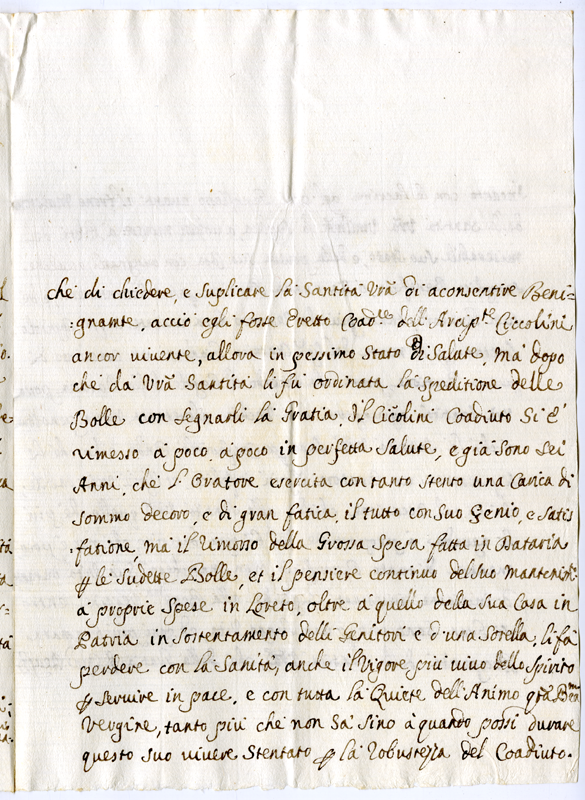 che di chiedere, e suplicare la Santità Vrã di aconsentire Beni=
:gnamte, acciò egli fosse Eretto Coad.re dell'Arcip.te Ciccolini
ancor vivente, allora in pessimo Stato di Salute, mà dopo
che dà Vrã Santità li fù ordinata la Speditione delle
Bolle con segnarli la Gratia, Il Cicolini Coadiuto Si è
rimesso à poco, à poco in perfetta Salute, e già sono sei
Anni, che l'Oratore esercita con tanto stento una Carica di
sommo decoro, e di gran fatica, il tutto con suo Genio, e satis
:fatione, mà il rimorso della Grossa Spesa fatta in Dataria
per le sudette Bolle, et il pensiere continuo del suo
à proprie Spese in Loreto, oltre à quello della sua Casa in
Patria in sostentamento delli Genitori e d'una Sorella, li fà
perdere con la Sanità, anche il Vigore più vivo dello Spirito
per servire in pace, e con tutta la Quiete dell'Animo qtã
Vergine, tanto più che non Sà sino à quando possi durare
questo suo vivere Stentato per la robustezza del Coadiuto.